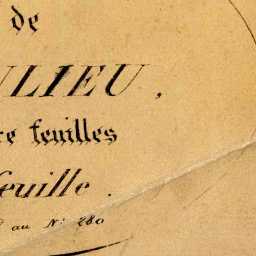 de
ULIEU,
re feuilles
feuille.
au N° 280